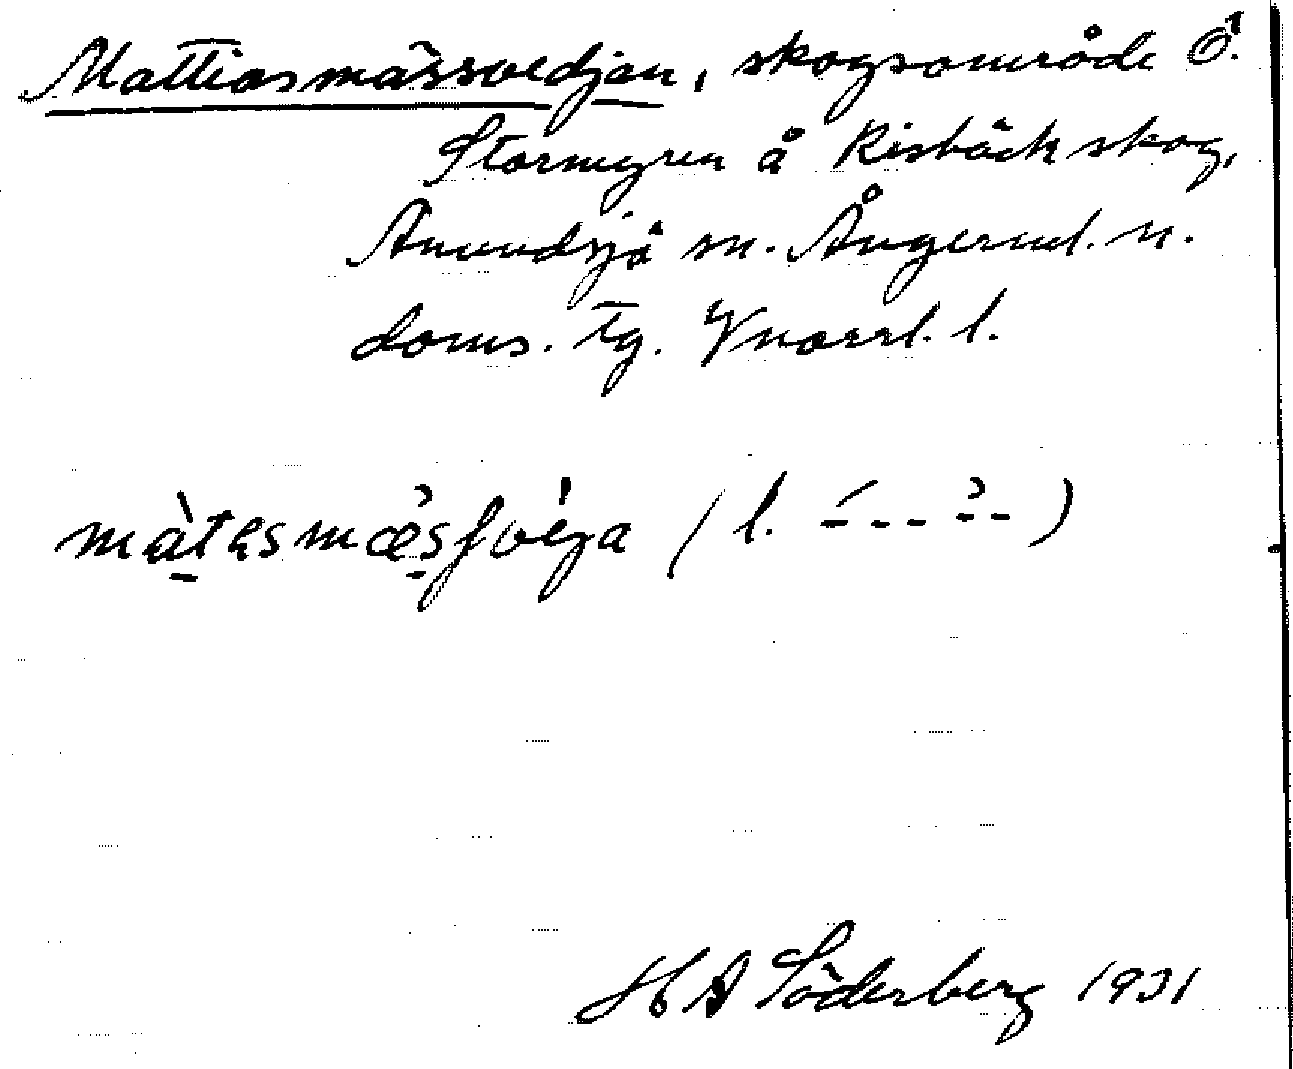 Mattiasmässvedjan, skogsområde Ö.
Stormyren å Risbäck skog,
Anundsjö sn. Ångerml. n.
doms. tg. Vnorrl. l.
màtasmæ̀sʃvéga (l. -́--- -̀-)
H A Söderberg 1931